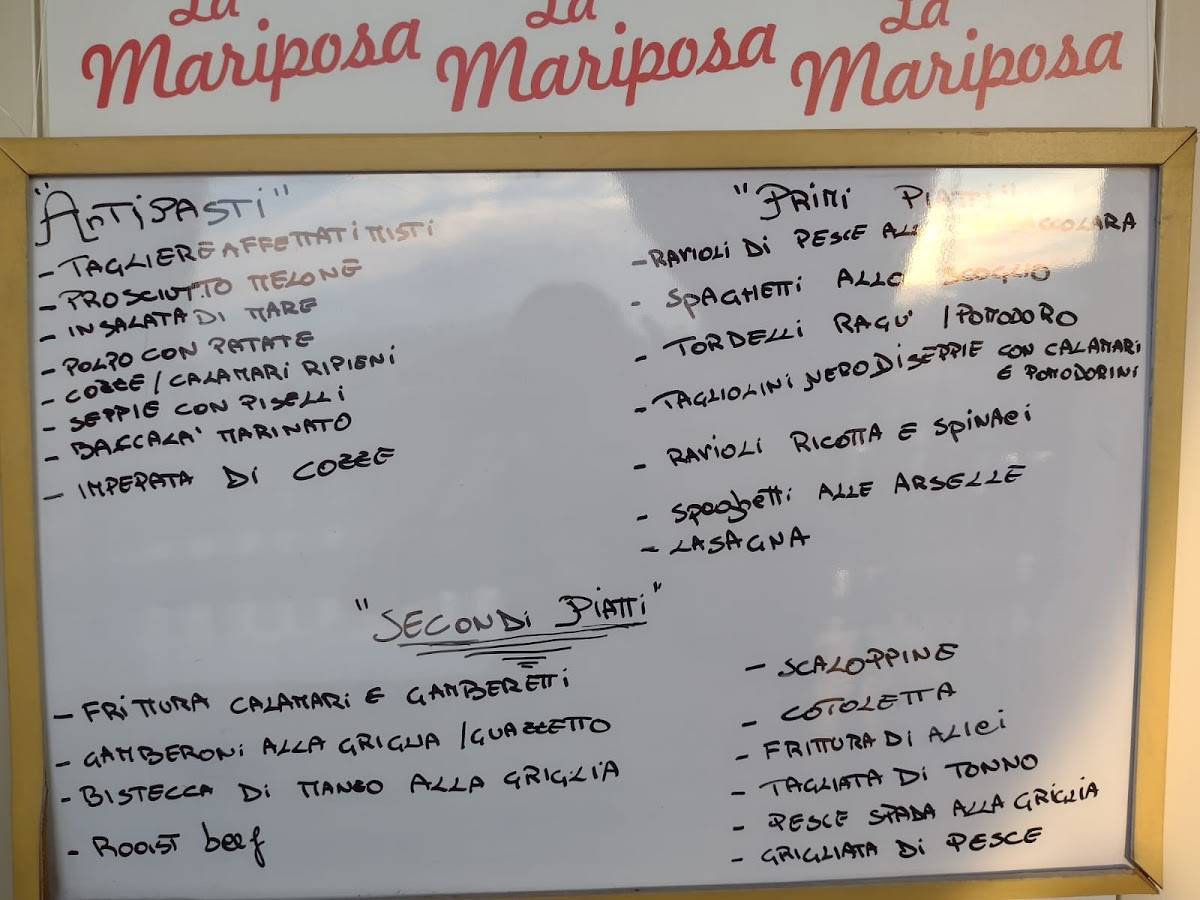 La Mariposa
La Mariposa
La Mariposa
"ANTIPASTI"
- TAGLIERE AFFETTATI MISTI
- PROSCIUTTO MELONE
- INSALATA DI MARE
- POLPO CON PATATE
- COZZE / CALAMARI RIPIENI
- SEPPIE CON PISELLI
- BACCALA' MARINATO
- IMPEPATA DI COZZE
"PRIMI PIATTI"
- RAVIOLI DI PESCE
- SPAGHETTI ALLO SCOGLIO
- TORDELLI RAGU' / POMODORO
- TAGLIOLINI NERO DI SEPPIE CON CALAMARI
E POMODORINI
- RAVIOLI RICOTTA E SPINACI
- SPAGHETTI ALLE ARSELLE
- LASAGNA
"SECONDI PIATTI"
- FRITTURA CALAMARI E GAMBERETTI
- GAMBERONI ALLA GRIGLIA / GUAZZETTO
- BISTECCA DI MANZO ALLA GRIGLIA
- Roast beef
- SCALOPPINE
- COTOLETTA
- FRITTURA DI ALICI
- TAGLIATA DI TONNO
- PESCE SPADA ALLA GRIGLIA
- GRIGLIATA DI PESCE